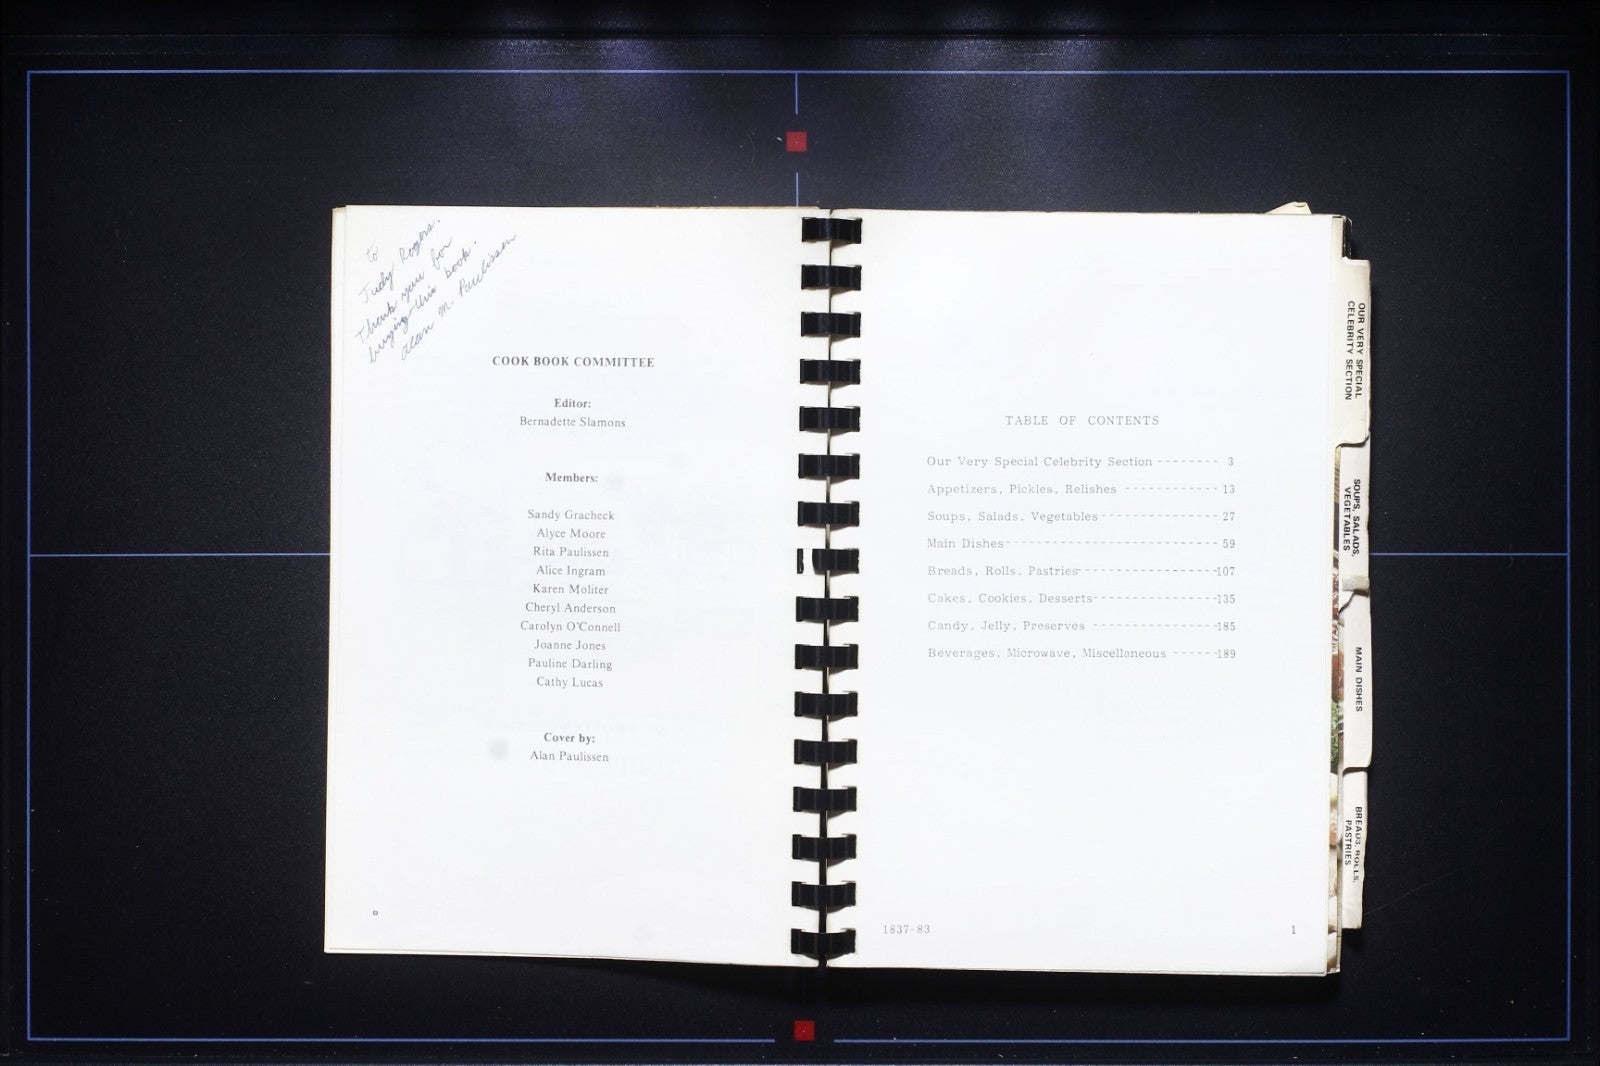 to
Judy Rogers.
Thank you for
buying this book.
Alan M. Paulissen
COOK BOOK COMMITTEE
Editor:
Bernadette Slamons
Members:
Sandy Gracheck
Alyce Moore
Rita Paulissen
Alice Ingram
Karen Moliter
Cheryl Anderson
Carolyn O'Connell
Joanne Jones
Pauline Darling
Cathy Lucas
Cover by:
Alan Paulissen
TABLE OF CONTENTS
Our Very Special Celebrity Section -------- 3
Appetizers, Pickles, Relishes ------------ 13
Soups, Salads, Vegetables --------------- 27
Main Dishes --------------------------- 59
Breads, Rolls, Pastries ------------------107
Cakes, Cookies, Desserts ----------------135
Candy, Jelly, Preserves ----------------185
Beverages, Microwave, Miscellaneous ------189
1837-83
1
OUR VERY SPECIAL
CELEBRITY SECTION
SOUPS, SALADS,
VEGETABLES
MAIN DISHES
BREADS, ROLLS,
PASTRIES